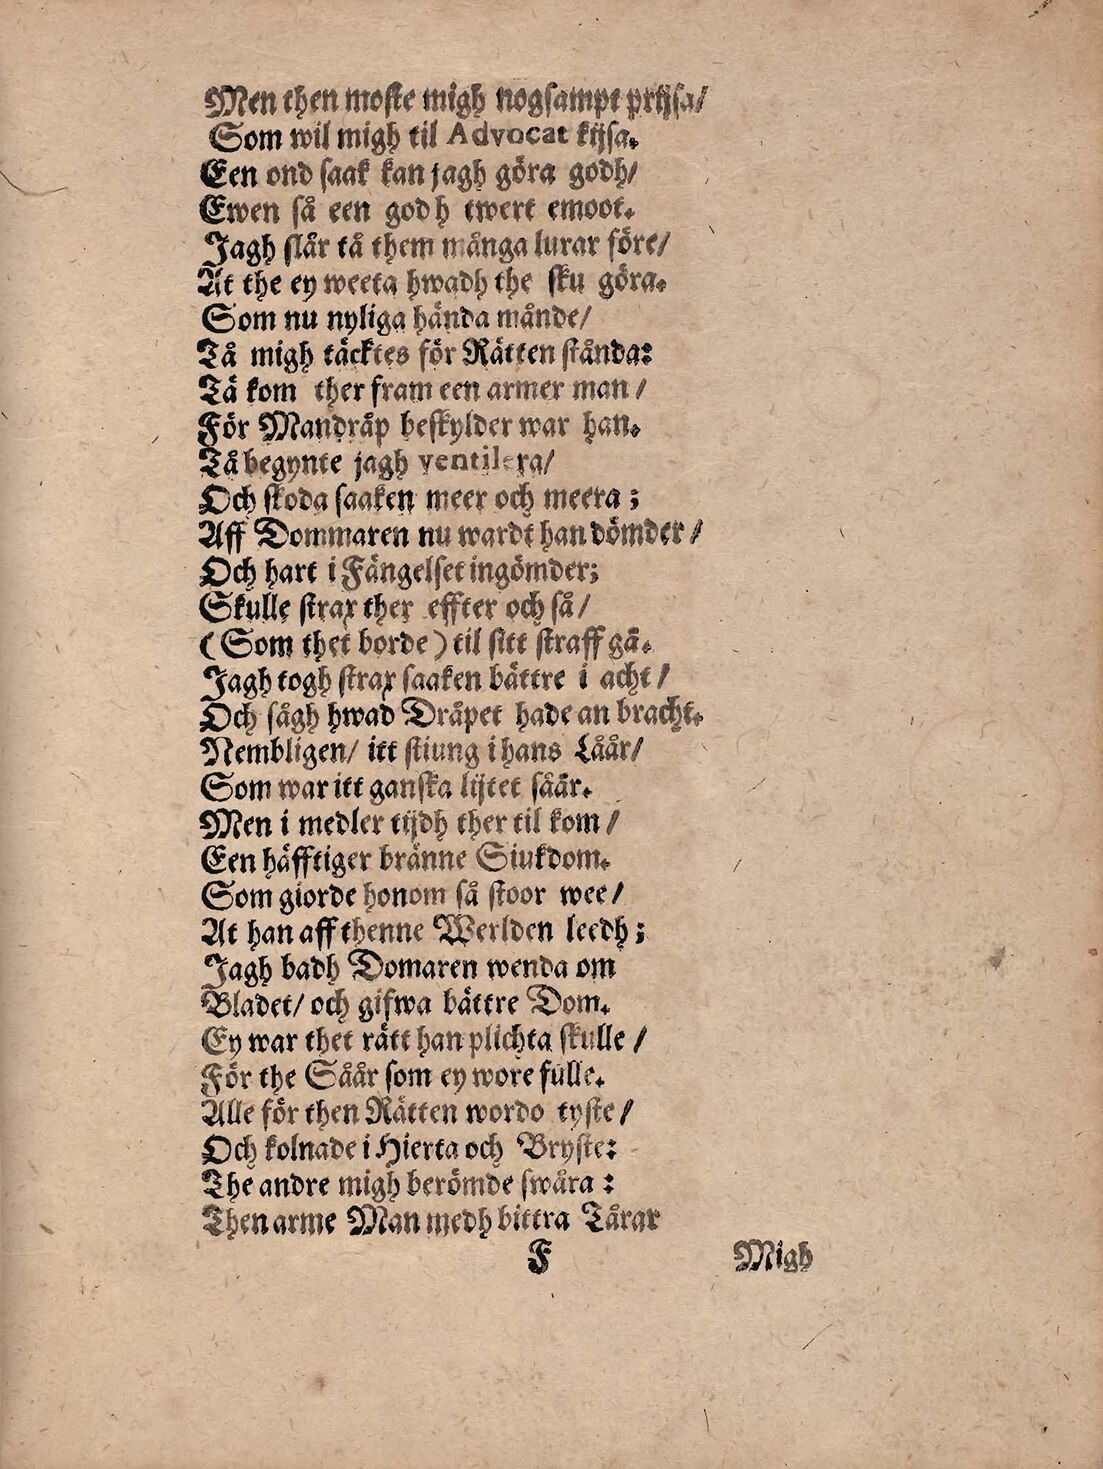 Men then moste migh nogsampt prijsa/
Som wil migh til Advocat kijsa.
Een ond saak kan jagh göra godh/
Ewen så een godh twert emoot.
Jagh slår tå them många lurar före/
At the ey weeta hwadh the sku göra.
Som nu nyliga hända månde/
Tå migh täcktes för Rätten stånda:
Tå kom ther fram een armer man/
För Mandråp beskylder war han.
Tå begynte jagh ventilera/
Och skoda saaken meer och meera;
Aff Dommaren nu wardt han dömder/
Och hart i Fängelset ingömder;
Skulle strax ther effter och så/
(Som thet borde) til sitt straff gå.
Jagh togh strax saaken bättre i acht/
Och sågh hwad Dråpet hade an bracht.
Nembligen/ itt stiung i hans Låår/
Som war itt ganska lijtet såår.
Men i medler tijdh ther til kom/
Een häfftiger bränne Siukdom.
Som giorde honom så stoor wee/
At han aff thenne Werlden leedh;
Jagh badh Domaren wenda om
Bladet/ och gifwa bättre Dom.
Ey war thet rätt han plichta skulle/
För the Såår som ey wore fulle.
Alle för then Rätten wordo tyste/
Och kolnade i Hierta och Bryste:
The andre migh berömde swåra:
Then arme Man medh bittra Tårar
F Migh